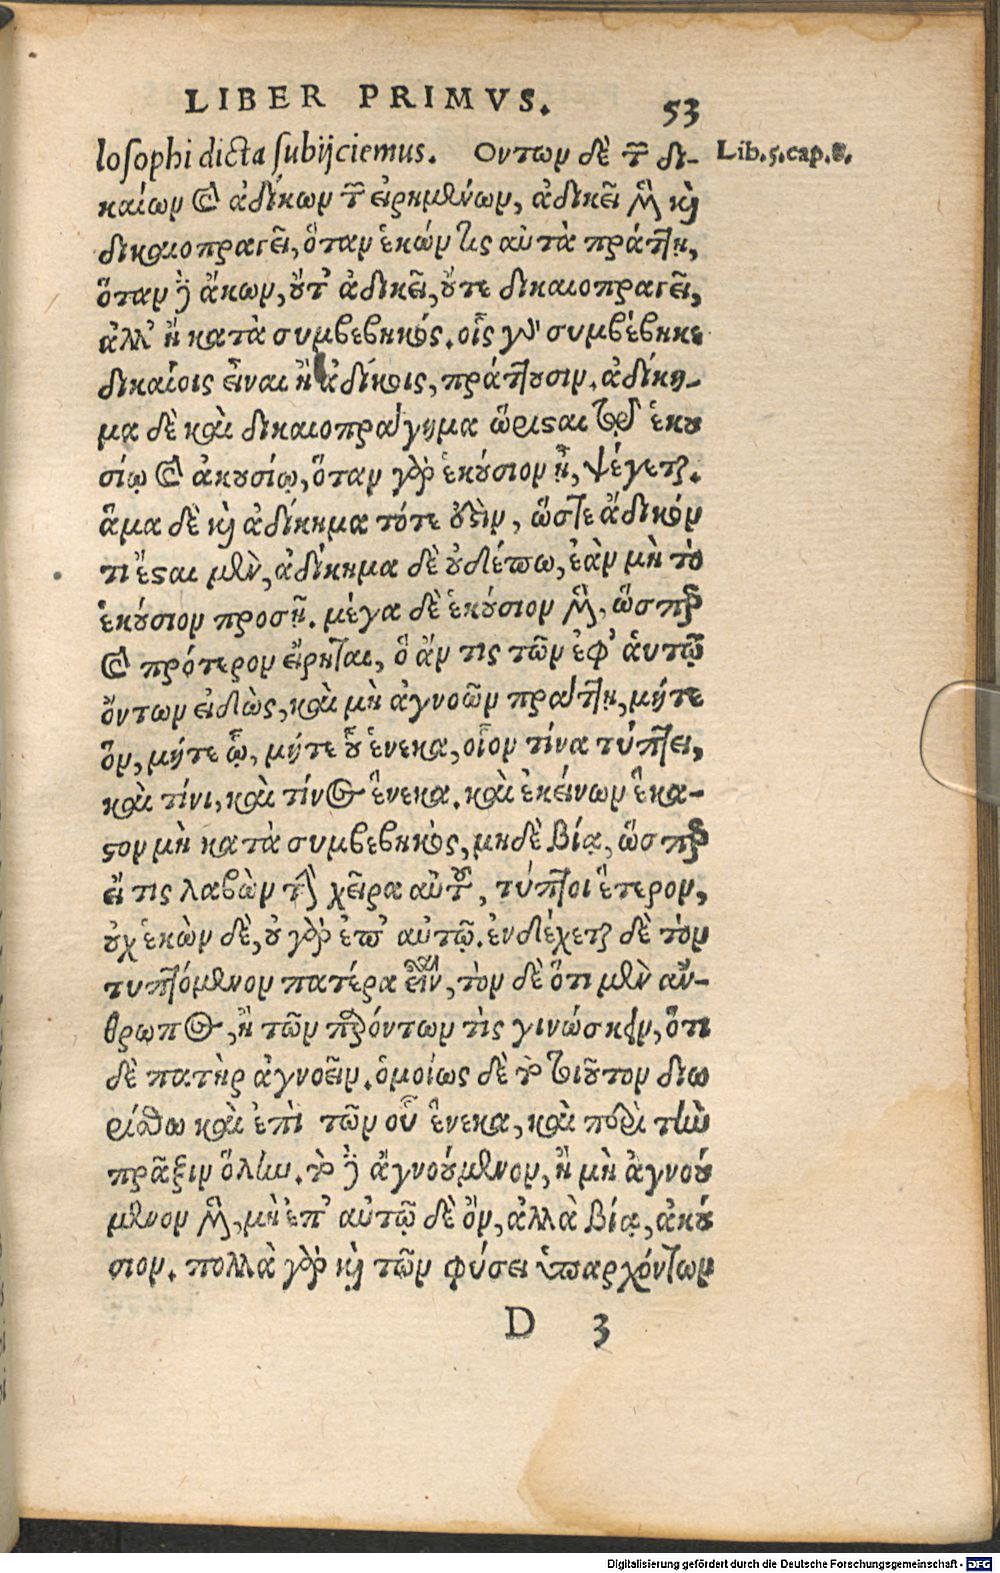 LIBER PRIMVS. 53
losophi dicta subijciemus. Οντων δὲ τῶν δι- Lib.5.cap.8.
καίων καὶ ἀδίκων τῶν εἰρημένων, ἀδικεῖ μὲν καὶ
δικαιοπραγεῖ, ὅταν ἑκών τις αὐτὰ πράττῃ,
ὅταν δὲ ἄκων, οὔτ' ἀδικεῖ, οὔτε δικαιοπραγεῖ,
ἀλλ' ἢ κατὰ συμβεβηκός. οἷς γὰρ συμβέβηκε
δικαίοις εἶναι ἢ ἀδίκοις, πράττουσιν. ἀδίκη-
μα δὲ καὶ δικαιοπράγημα ὥρισαι τῷ ἑκου
σίῳ καὶ ἀκουσίῳ, ὅταν γὰρ ἑκούσιον ᾖ, ψέγεται.
ἅμα δὲ καὶ ἀδίκημα τότε οὐδὲν, ὥστε ἄδικόν
τι ἔσαι μὲν, ἀδίκημα δὲ οὐδέπω, ἐὰν μὴ τὸ
ἑκούσιον προσῇ. μέγα δὲ ἑκούσιον μὲν, ὥσπερ
καὶ πρότερον εἴρηται, ὃ ἄν τις τῶν ἐφ' ἁυτῷ
ὄντων εἰδὼς, καὶ μὴ ἀγνοῶν πράττῃ, μήτε
ὃν, μήτε ᾧ, μήτε οὗ ἕνεκα, οἷον τίνα τύπτει,
καὶ τίνι, καὶ τίνος ἕνεκα. καὶ ἐκείνων ἕκα-
στον μὴ κατὰ συμβεβηκὸς, μηδὲ βίᾳ, ὥσπερ
εἴ τις λαβὼν τὴν χεῖρα αὐτοῦ, τύπτοι ἕτερον,
οὐχ ἑκὼν δὲ, οὐ γὰρ ἐπ' αὐτῷ. ἐνδέχεται δὲ τὸν
τυπτόμενον πατέρα εἶναι, τὸν δὲ ὅτι μὲν ἄν-
θρωπος, ἢ τῶν παρόντων τὶς γινώσκειν, ὅτι
δὲ πατὴρ ἀγνοεῖν. ὁμοίως δὲ τὸ τοιοῦτον διω
ρίσθω καὶ ἐπὶ τῶν οὗ ἕνεκα, καὶ περὶ τὴν
πρᾶξιν ὅλην. τὸ δὲ ἀγνούμενον, ἢ μὴ ἀγνού
μενον μὲν, μὴ ἐπ' αὐτῷ δὲ ὂν, ἀλλὰ βίᾳ, ἀκού
σιον. πολλὰ γὰρ καὶ τῶν φύσει ὑπαρχόντων
D 3
Digitalisierung gefördert durch die Deutsche Forschungsgemeinschaft - DFG